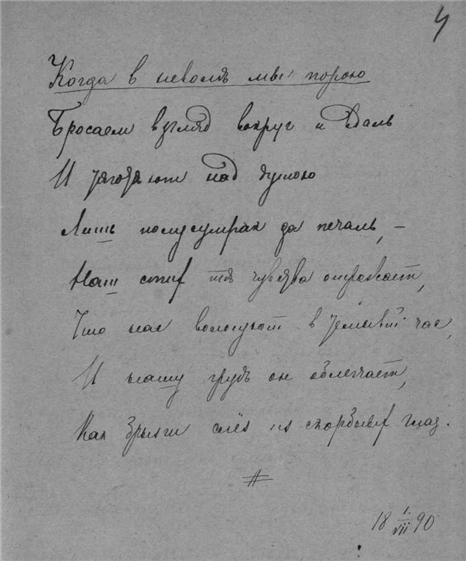 4
Когда в неволя мы порою
Бросаем взгляд вокруг и вдаль
И над думою
Лишь полусумрак да печаль, –
Наш стих те чувства отражает,
Что нас волнуют в час,
И нашу грудь он облегчает,
Как брызги слёз из скорбных глаз.
18 1/VII 90